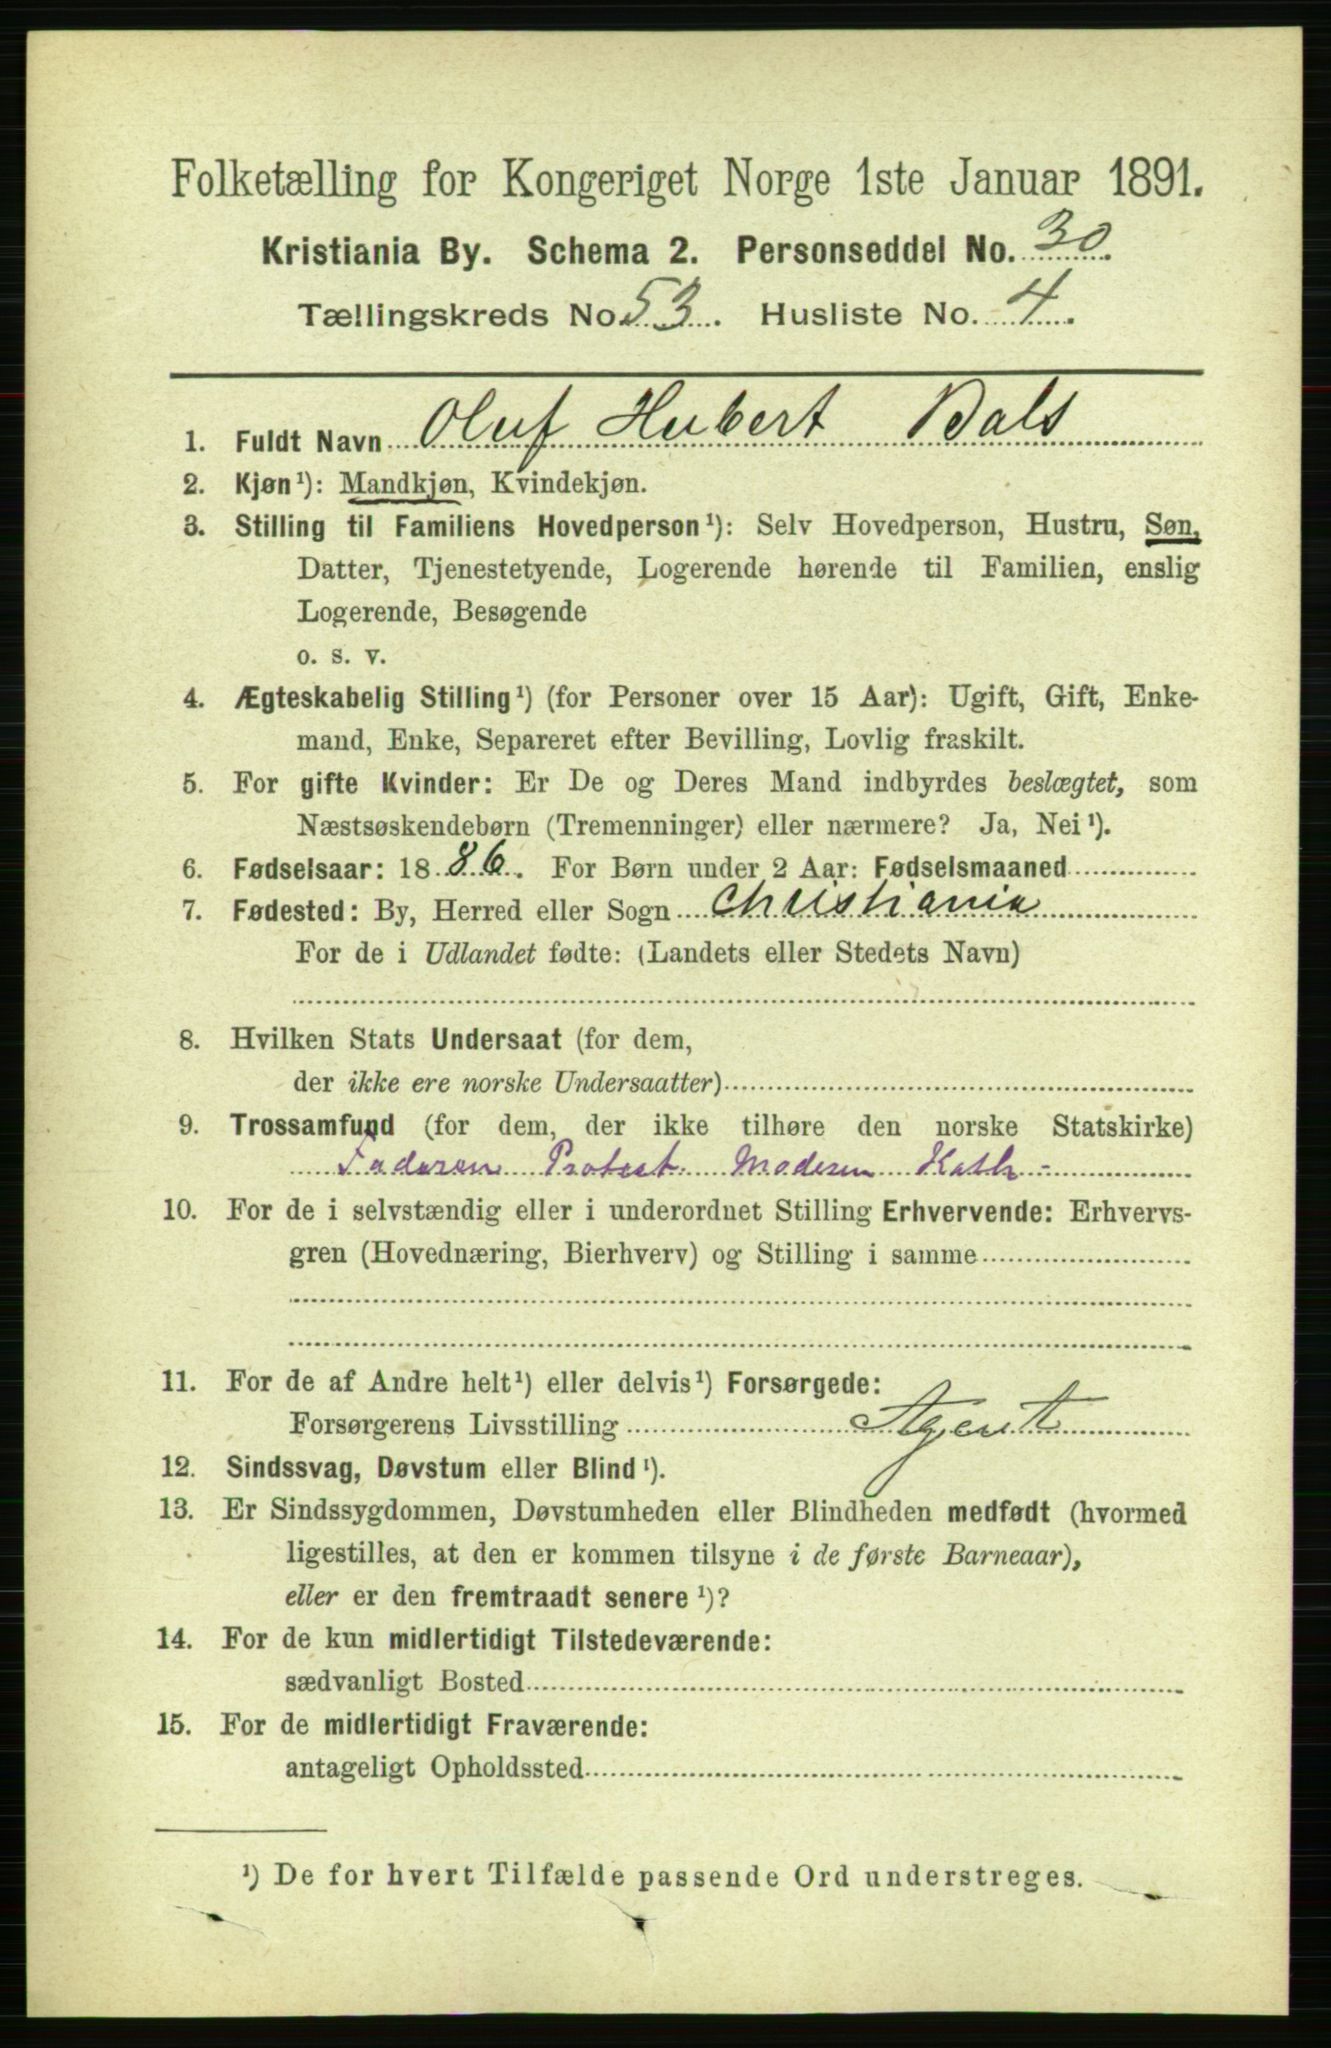 Folketælling for Kongeriget Norge 1ste Januar 1891.
Kristiania By. Schema 2. Personseddel No. 30
Tællingskreds No. 53. Husliste No. 4.
1. Fuldt Navn Oluf Hubert Bals
2. Kjøn¹): Mandkjøn, Kvindekjøn.
3. Stilling til Familiens Hovedperson¹): Selv Hovedperson, Hustru, Søn,
Datter, Tjenestetyende, Logerende hørende til Familien, enslig
Logerende, Besøgende
o. s. v.
4. Ægteskabelig Stilling¹) (for Personer over 15 Aar): Ugift, Gift, Enke-
mand, Enke, Separeret efter Bevilling, Lovlig fraskilt.
5. For gifte Kvinder: Er De og Deres Mand indbyrdes beslægtet, som
Næstsøskendebørn (Tremenninger) eller nærmere? Ja, Nei¹).
6. Fødselsaar: 1886. For Børn under 2 Aar: Fødselsmaaned
7. Fødested: By, Herred eller Sogn Christiania
For de i Udlandet fødte: (Landets eller Stedets Navn)
8. Hvilken Stats Undersaat (for dem,
der ikke ere norske Undersaatter)
9. Trossamfund (for dem, der ikke tilhøre den norske Statskirke)
Faderen Protest. Moderen Kath-
10. For de i selvstændig eller i underordnet Stilling Erhvervende: Erhvervs-
gren (Hovednæring, Bierhverv) og Stilling i samme
11. For de af Andre helt¹) eller delvis¹) Forsørgede:
Forsørgerens Livsstilling Agent
12. Sindssvag, Døvstum eller Blind¹).
13. Er Sindssygdommen, Døvstumheden eller Blindheden medfødt (hvormed
ligestilles, at den er kommen tilsyne i de første Barneaar),
eller er den fremtraadt senere¹)?
14. For de kun midlertidigt Tilstedeværende:
sædvanligt Bosted
15. For de midlertidigt Fraværende:
antageligt Opholdssted
¹) De for hvert Tilfælde passende Ord understreges.